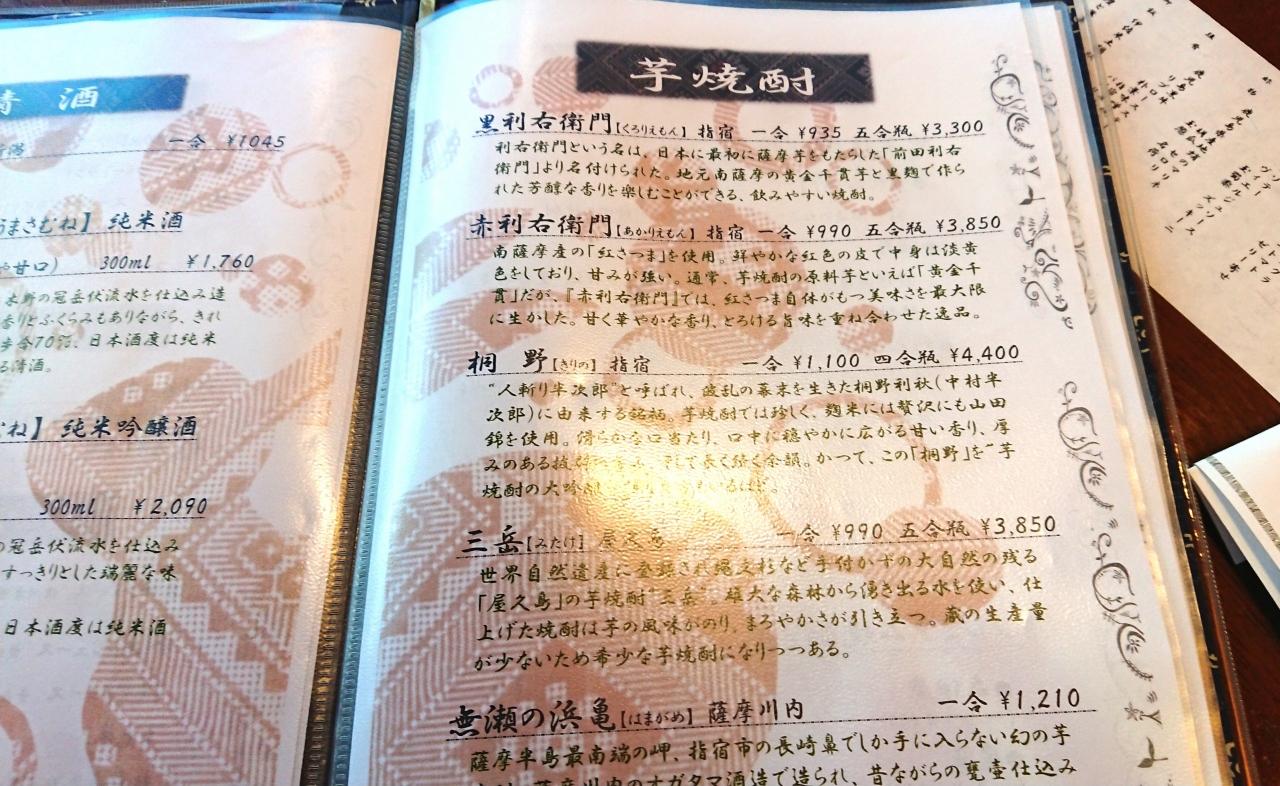 清酒
一合 ¥1045
うまさむね】 純米酒
や甘口) 300ml ¥1,760
水野の冠岳伏流水を仕込み造
香りとふくらみもありながら、きれ
歩合70%、日本酒度は純米
る清酒。
むね】 純米吟醸酒
300ml ¥2,090
の冠岳伏流水を仕込み
すっきりとした端麗な味
日本酒度は純米酒
芋焼酎
黒利右衛門【くろりえもん】 指宿 一合 ¥935 五合瓶 ¥3,300
利右衛門という名は、日本に最初に薩摩芋をもたらした「前田利右
衛門」より名付けられた。地元南薩摩の黄金千貫芋と黒麹で作ら
れた芳醇な香りを楽しむことができる、飲みやすい焼酎。
赤利右衛門【あかりえもん】 指宿 一合 ¥990 五合瓶 ¥3,850
南薩摩産の「紅さつま」を使用。鮮やかな紅色の皮で中身は淡黄
色をしており、甘みが強い。通常、芋焼酎の原料芋といえば「黄金千
貫」だが、『赤利右衛門』では、紅さつま自体がもつ美味さを最大限
に生かした。甘く華やかな香り、とろける旨味を重ね合わせた逸品。
桐 野【きりの】 指宿 一合 ¥1,100 四合瓶 ¥4,400
"人斬り半次郎"と呼ばれ、波乱の幕末を生きた桐野利秋(中村半
次郎)に由来する銘柄。芋焼酎では珍しく、麹米には贅沢にも山田
錦を使用。滑らかな口当たり、口中に穏やかに広がる甘い香り、厚
みのある そして長く続く余韻。かつて、この「桐野」を"芋
焼酎の大吟醸
三岳【みたけ】 屋久島 一合 ¥990 五合瓶 ¥3,850
世界自然遺産に登録され縄文杉など手付かずの大自然の残る
「屋久島」の芋焼酎"三岳"。雄大な森林から湧き出る水を使い、仕
上げた焼酎は芋の風味がのり、まろやかさが引き立つ。蔵の生産量
が少ないため希少な芋焼酎になりつつある。
無瀬の浜亀【はまがめ】 薩摩川内 一合 ¥1,210
薩摩半島最南端の岬、指宿市の長崎鼻でしか手に入らない幻の芋
薩摩川内のオガタマ酒造で造られ、昔ながらの甕壷仕込み